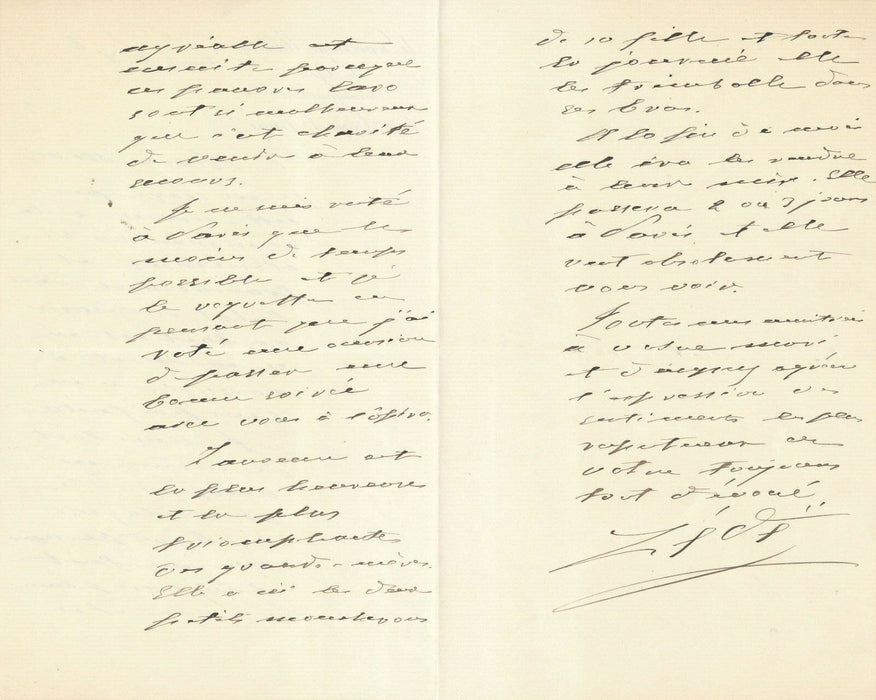 agréable et
ensuite parceque
ces pauvres
sont si malheureux
que c'est charité
de venir à leur
secours.
Je ne suis resté
à Paris que le
moins de temps
possible et je
le regrette en
pensant que j'ai
raté une occasion
de passer une
bonne soirée
avec vous à l'opéra.
est
la plus heureuse
et la plus
triomphante
des grands-mères.
Elle a ici les deux
petits
de sa fille et toute
la journée elle
les trimballe dans
ses bras.
A la fin de mois
elle ira les rendre
à leur mère. Elle
passera 2 ou 3 jours
à Paris et elle
veut absolument
vous voir.
Toutes mes amitiés
à votre mari
et daignez agréer
l'expression des
sentiments les plus
respectueux de
votre toujours
tout dévoué
Zédé